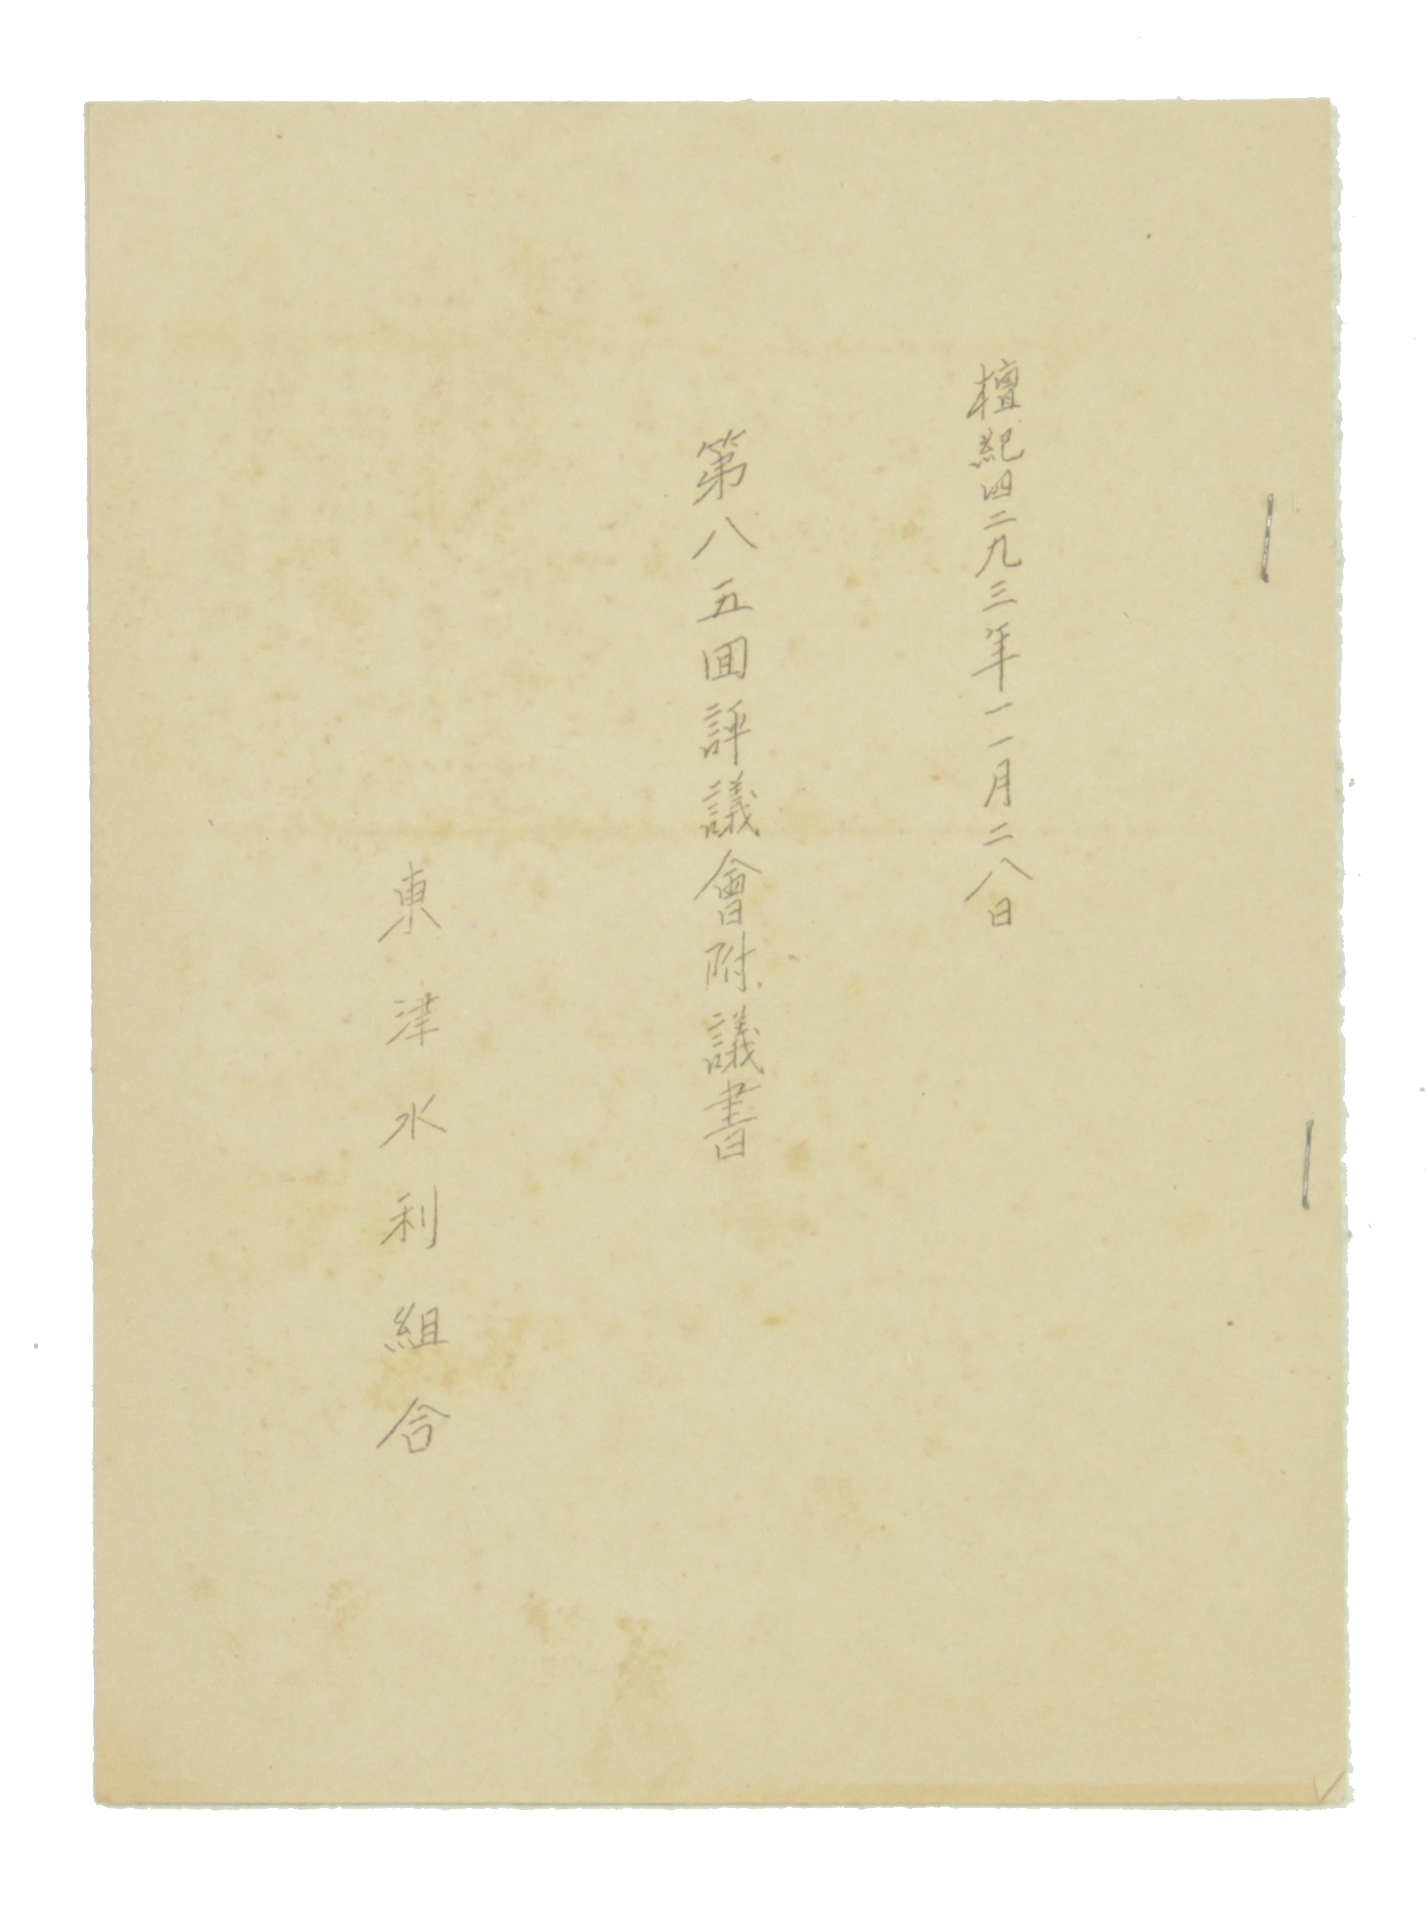 檀紀四二九三年一一月二八日
第八五回評議會附議書
東津水利組合